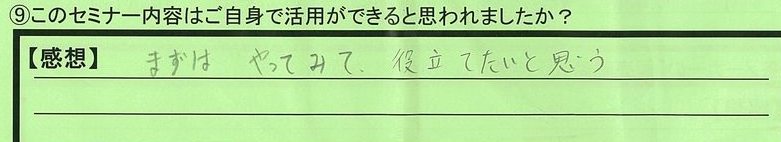 ⑨このセミナー内容はご自身で活用ができると思われましたか？
【感想】 まずは やってみて、役立てたいと思う